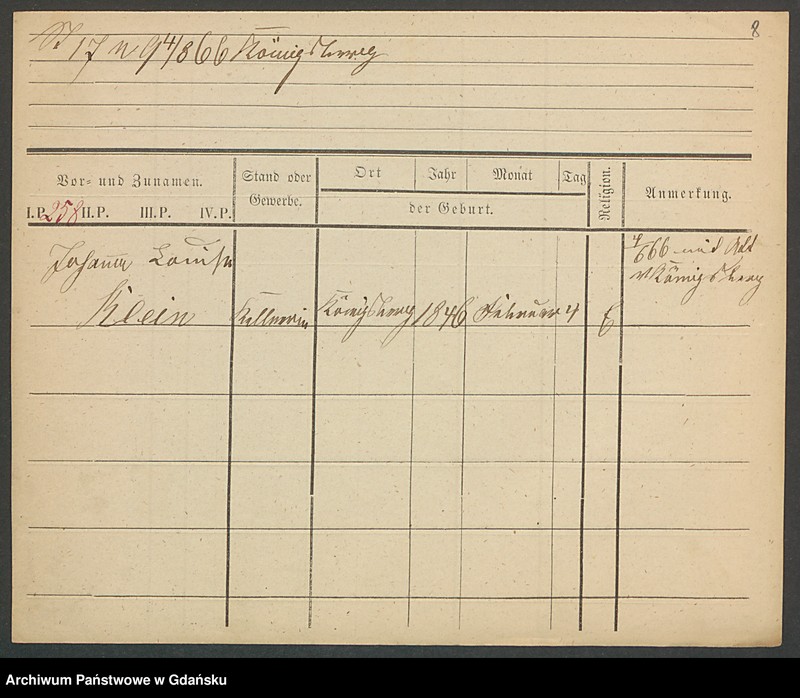 8
17 n 9 4/8 66 Königsberg
Vor- und Zunamen.
Stand oder
Gewerbe.
Ort
Jahr
Monat
Tag
der Geburt.
Religion.
Anmerkung.
I.P. 258 II.P. III.P. IV.P.
666 mit Att
v Königsberg
Johann Louise
Klein
Kellnerin
Königsberg
1846
Februar
4
E
Archiwum Państwowe w Gdańsku